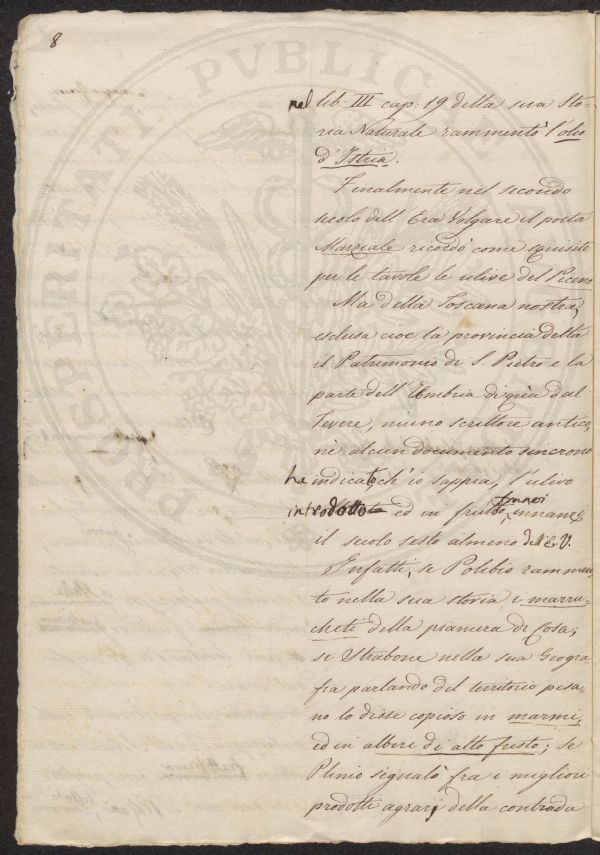 8
nel lib: III cap: 19 della sua Sto-
ria Naturale rammentò l'olio
d'Istria.
Finalmente nel secondo
secolo dell'Era Volgare il poeta
Marziale ricordò come squisite
per le tavole le ulive del Piceno
Ma della Toscana nostra,
esclusa cioè la provincia detta
il Patrimonio di S. Pietro e la
parte dell'Umbria di quà dal
Tevere, niuno scrittore antico,
nè alcun documento sincrono
ha indicato, ch'io sappia, l'ulivo
introdotto ed in frutto innanzi
il secolo sesto almeno dell'E. V.
Infatti, se Polibio rammen-
tò nella sua storia i marru-
cheti della pianura di Cosa;
se Strabone nella sua Geogra-
fia parlando del territorio pisa-
no lo disse copioso in marmi,
ed in alberi di alto fusto; se
Plinio segnalò fra i migliori
prodotti agrarj della contrada
PROSPERITATI PVBLICAE